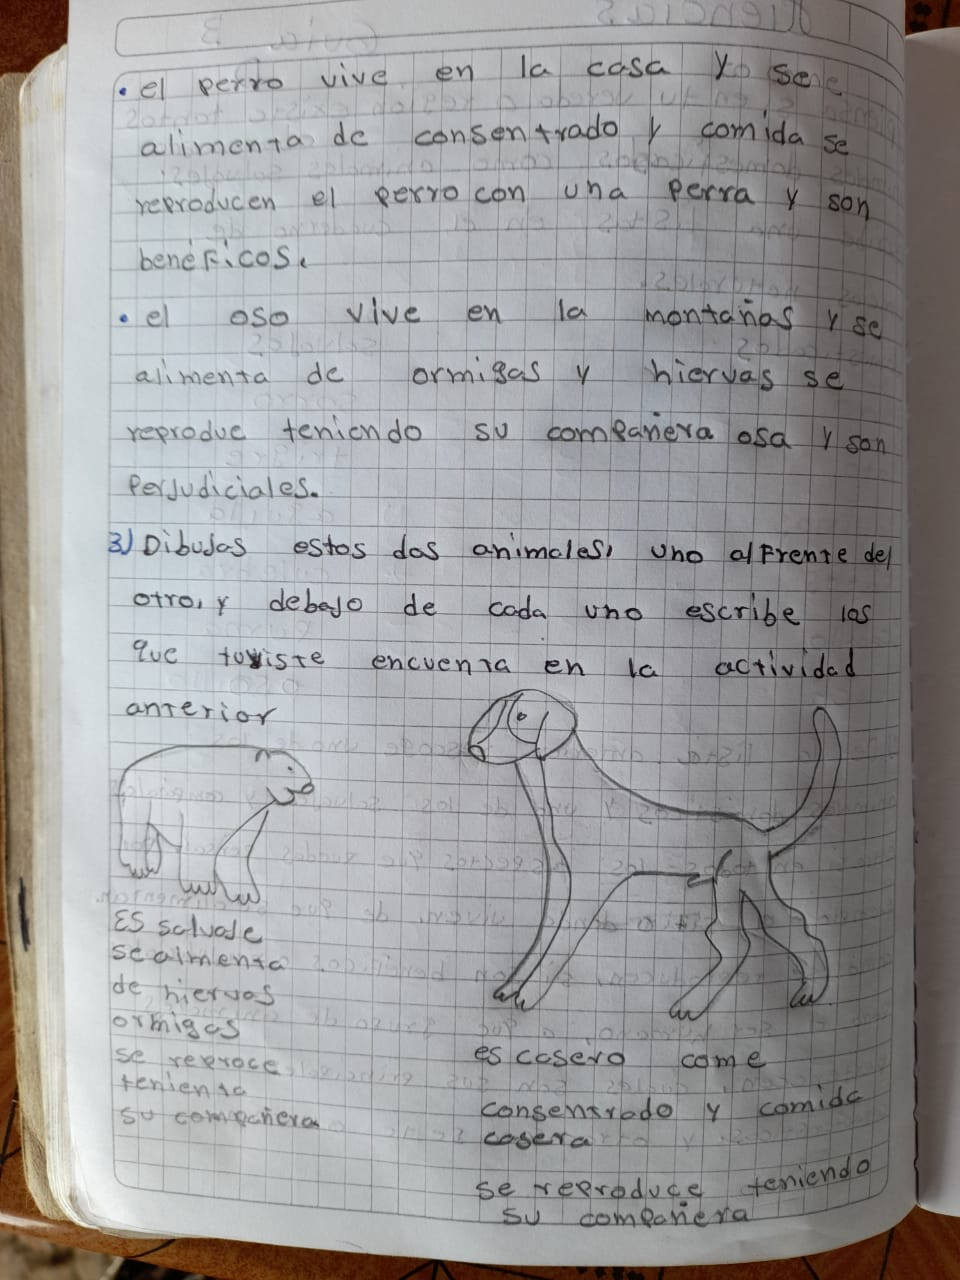 • el perro vive en la casa y se
alimenta de consentrado y comida se
reproducen el perro con una perra y son
beneficos.
• el oso vive en la montañas y se
alimenta de ormigas y hiervas se
reproduc teniendo su compañera osa y son
perjudiciales.
3) Dibujas estos dos animales, uno al frente del
otro, y debajo de cada uno escribe los
que tuviste encuenta en la actividad
anterior
ES salvaje
se almenta
de hiervas
ormigas
se reproce
tenienta
su compañera
es casero come
consentrado y comida
casera
se reproduce teniendo
su compañera